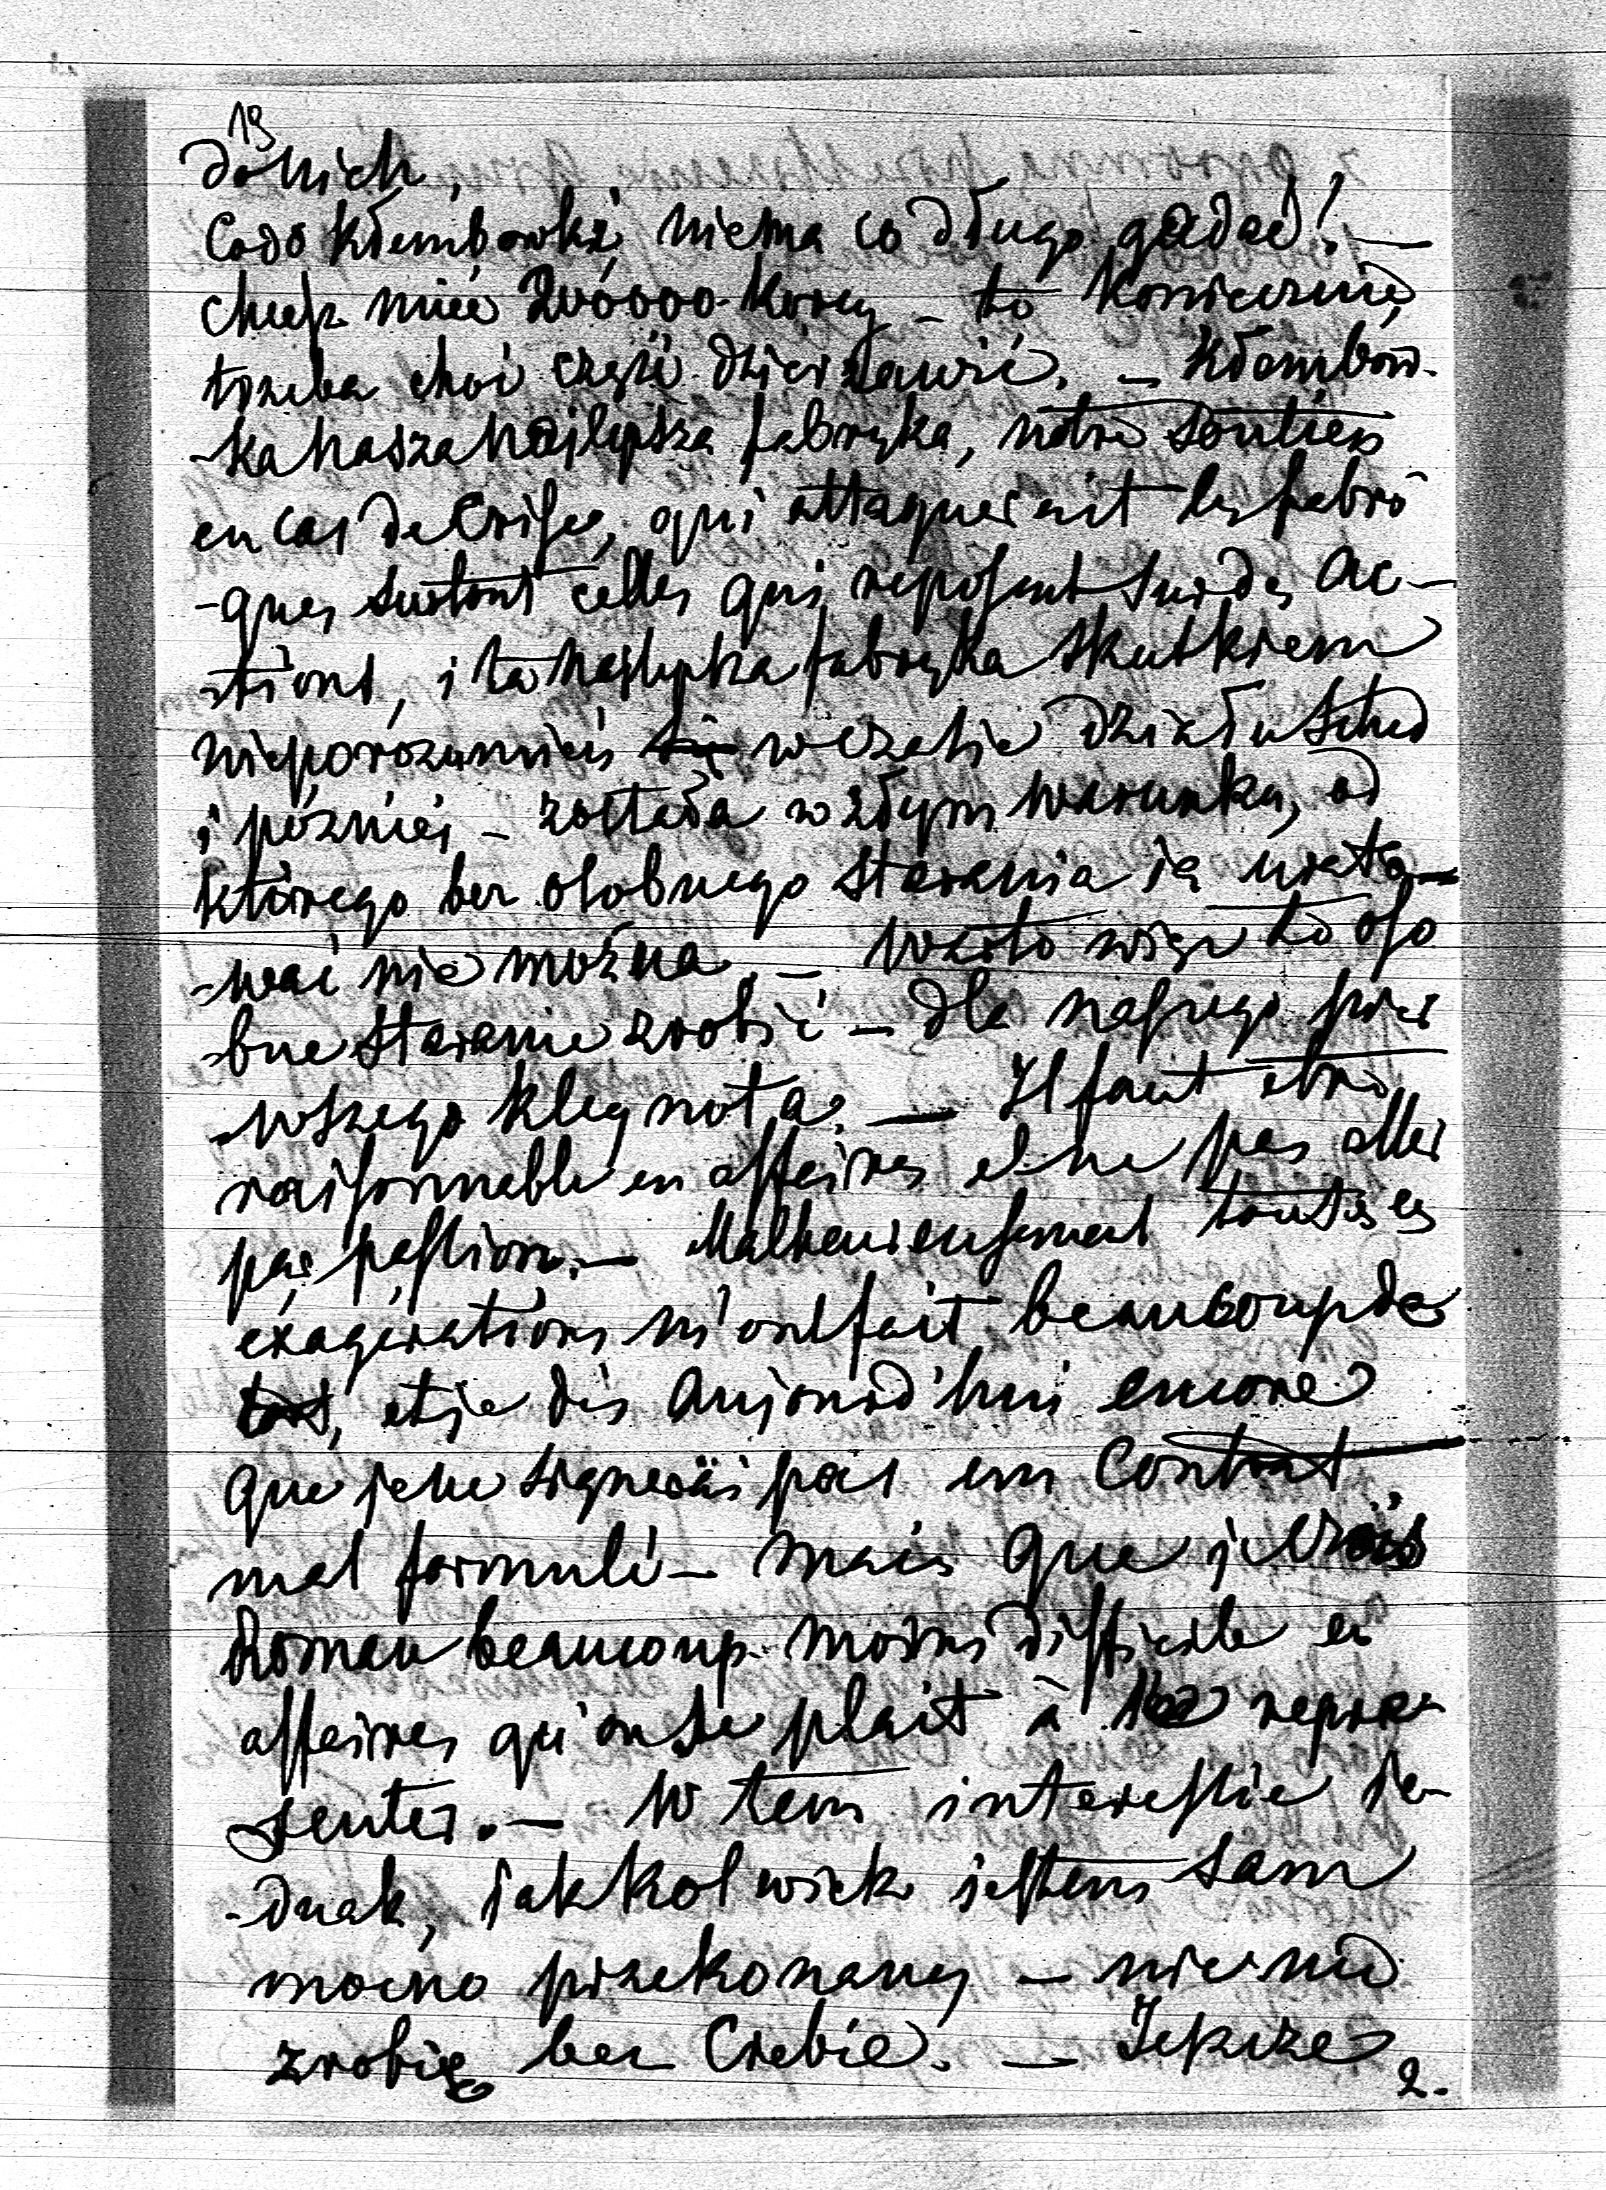 13
do nich,
Codo Kłembówki, niema co długo gadać! —
chcesz mieć 200000 korcy — to koniecznie,
trzeba choć część dzierżawić. — Kłembów-
-ka nasza najlepsza fabryka, notre soutien
en cas de Crise, qui attaquerait les fabri
-ques surtout celles qui reposent sur des Ac-
-tions, i ta najlepsza fabryka skutkiem
nieporozumień w czasie działu sched
i później — została w złym warunku, od
którego bez osobnego starania ią urato-
-wać nie można. — Warto więc to oso
-bne staranie zrobić — dla naszego pier
-wszego klejnota. — Il faut être
raisonnable en affaires et ne pas aller
par passion. — Malheureusement toutes ces
exagérations m'ont fait beaucoup de
tort, et je dis aujourd'hui encore
que je ne signerais pas un Contrat
mal formulé — mais que je crois
Roman beaucoup moins difficile en
affaires qu'on se plait à le repré-
senter. — W tem interessie je-
-dnak, jakkolwiek jestem sam
mocno przekonany — nic nie
zrobię bez Ciebie. —
2.